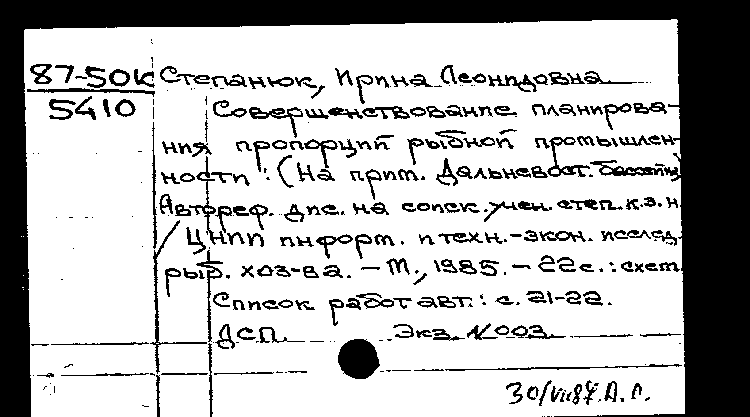 87-50к Степанюк, Ирина Леонидовна.
5410
Совершенствование планирова-
ния пропорций рыбной промышлен-
ности: (На прим. Дальневост. бассейна)
Автореф. дис. на соиск. учен. степ. к.э.н.
/ ЦНИИ информ. и техн.-экон. исслед.
рыб. хоз-ва. – М., 1985. – 22с.: схем.
Список работ авт.: с. 21-22.
ДСП. Экз. №003.
30/VII87. А.Л.